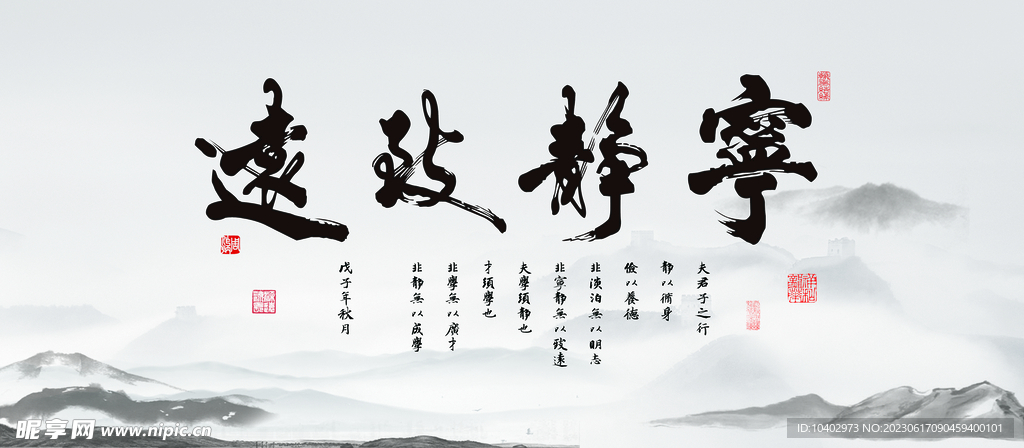 寧靜致遠
夫君子之行
靜以脩身
儉以養德
非淡泊無以明志
非寧靜無以致遠
夫學須靜也
才須學也
非學無以廣才
非靜無以成學
戊子年秋月
昵享网 www.nipic.cn
ID:10402973 NO:20230617090459400101